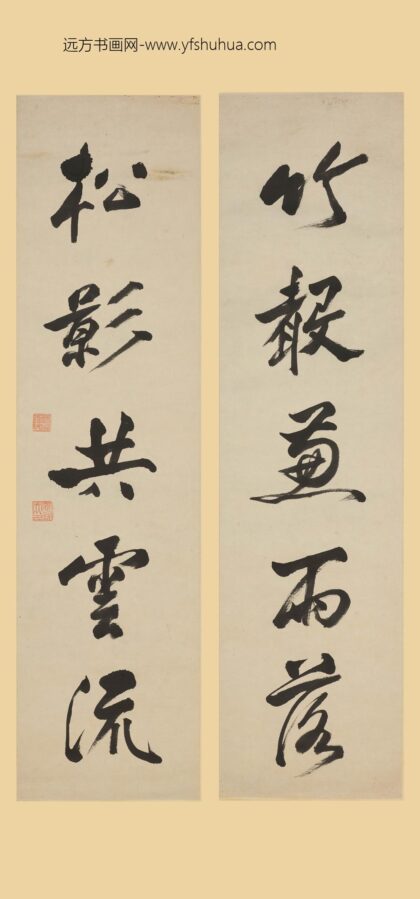 远方书画网-www.yfshuhua.com
竹聲兼雨落
松影共雲流